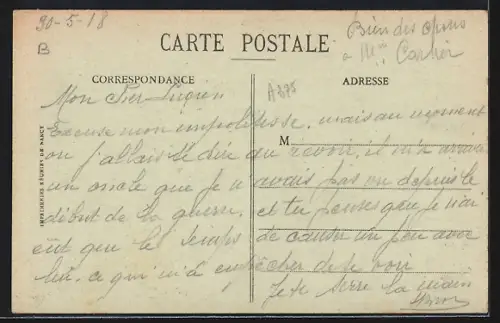 30-5-18
Bien des choses
à Mme Carlier
B
CARTE POSTALE
CORRESPONDANCE
ADRESSE
A375
Mon cher Lucien
Excuse mon impolitesse, mais au moment
M
où j'allais te dire au revoir, il m'a arrivé
un oncle que je n'avais pas vu depuis le
début de la guerre, et tu penses que je n'ai
eut que le temps de causer un peu avec
lui, ce qui m'a empêcher de te voir
Je te serre la main
IMPRIMERIES RÉUNIES DE NANCY